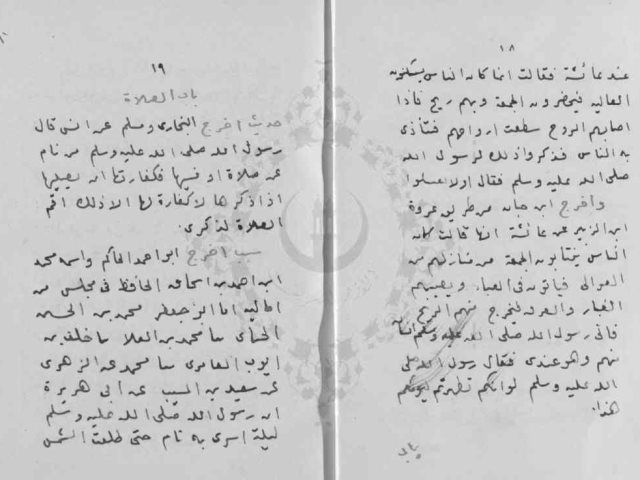 ١٨
عند عائشة فقالت انما كان الناس يسكنون
العالية فيحضرون الجمعة وبهم ريح فاذا
اصابهم الروح سطعت ارواحهم فتأذى
به الناس فذكروا ذلك لرسول الله
صلى الله عليه وسلم فقال اولا تغسلوا
واخرج ابن حبان من طريق عروة
ابن الزبير عن عائشة انها قالت كان
الناس ينتابون الجمعة من منازلهم من
العوالى فيأتون فى الغبار ويصيبهم
الغبار والعرق فيخرج منهم الريح
فاتى رسول الله صلى الله عليه وسلم انسان
منهم وهو عندى فقال رسول الله صلى
الله عليه وسلم لو انكم تطهرتم ليومكم
هذا.
باب
١٩
باب الصلاة
حديث اخرج البخارى ومسلم عن انس قال
رسول الله صلى الله عليه وسلم من نام
عن صلاة او نسيها فكفارتها ان يصليها
اذا ذكرها لا كفارة لها الا ذلك اقم
الصلاة لذكرى.
سبب اخرج ابو احمد الحاكم واسمه محمد
ابن احمد بن اسحاق الحافظ فى مجلس من
اماليه انا ابو جعفر محمد بن الحسين
محمد بن العلا ثنا خلف بن
ايوب العامرى ثنا معمر عن الزهرى
عن سعيد بن المسيب عن ابى هريرة
ان رسول الله صلى الله عليه وسلم
ليلة اسرى به نام حتى طلعت الشمس